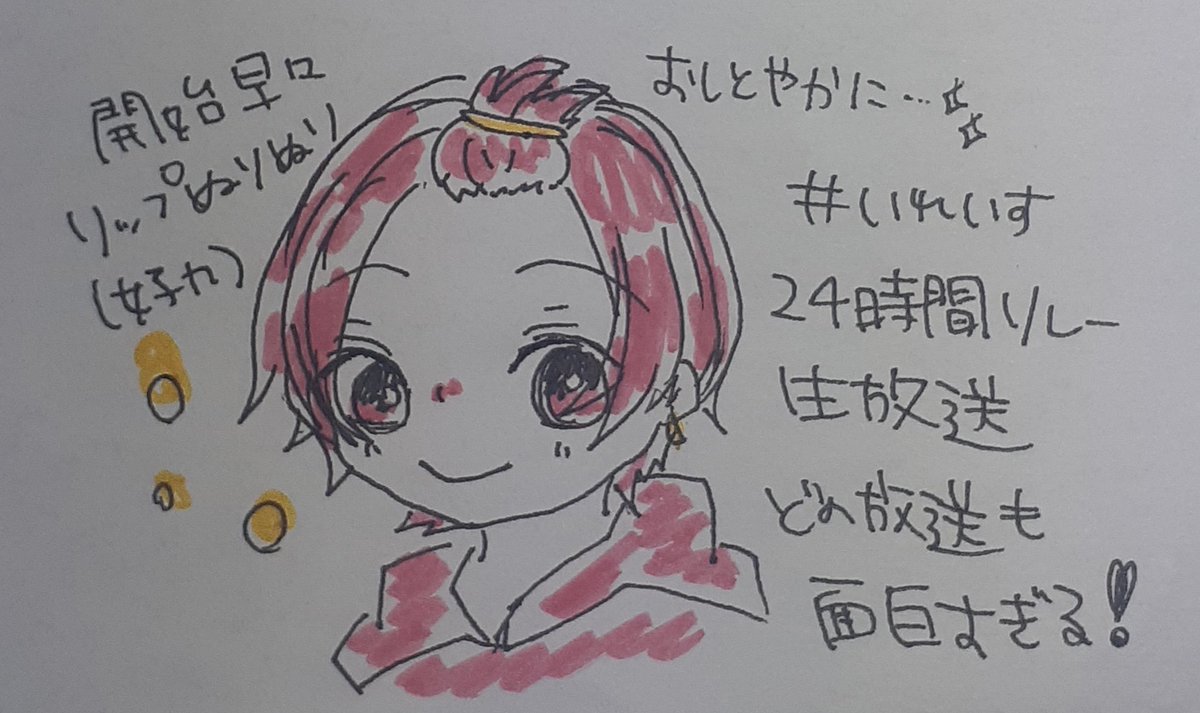 開始早口
リップぬりぬり
(女子力)
おしとやかに…
#いれいす
24時間リレー
生放送
どの放送も
面白すぎる!